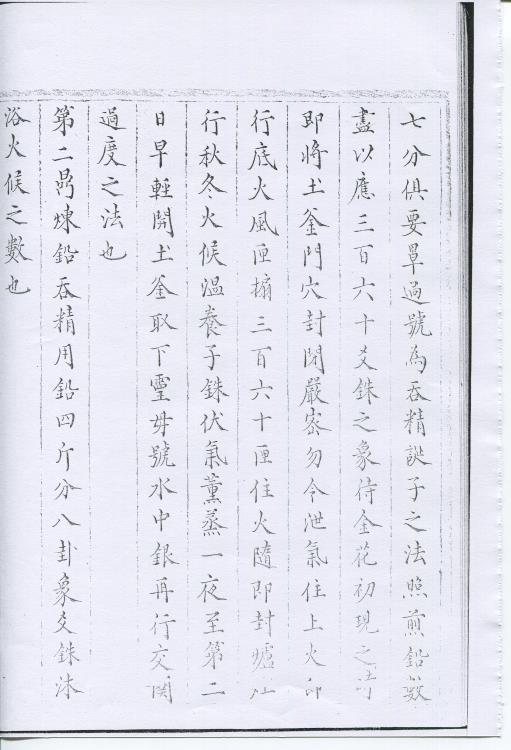 七分俱要罩過號為吞精誕子之法照煎鉛數
盡以應三百六十爻銖之象待金花初現之時
即將土釜門穴封閉嚴密勿令泄氣住上火即
行底火風匣搧三百六十匣住火隨即封爐灶
行秋冬火候溫養子銖伏氣薰蒸一夜至第二
日早輕開土釜取下靈母號水中銀再行交関
過度之法也
第二鼎煉鉛吞精用鉛四斤分八卦象爻銖沐
浴火候之數也